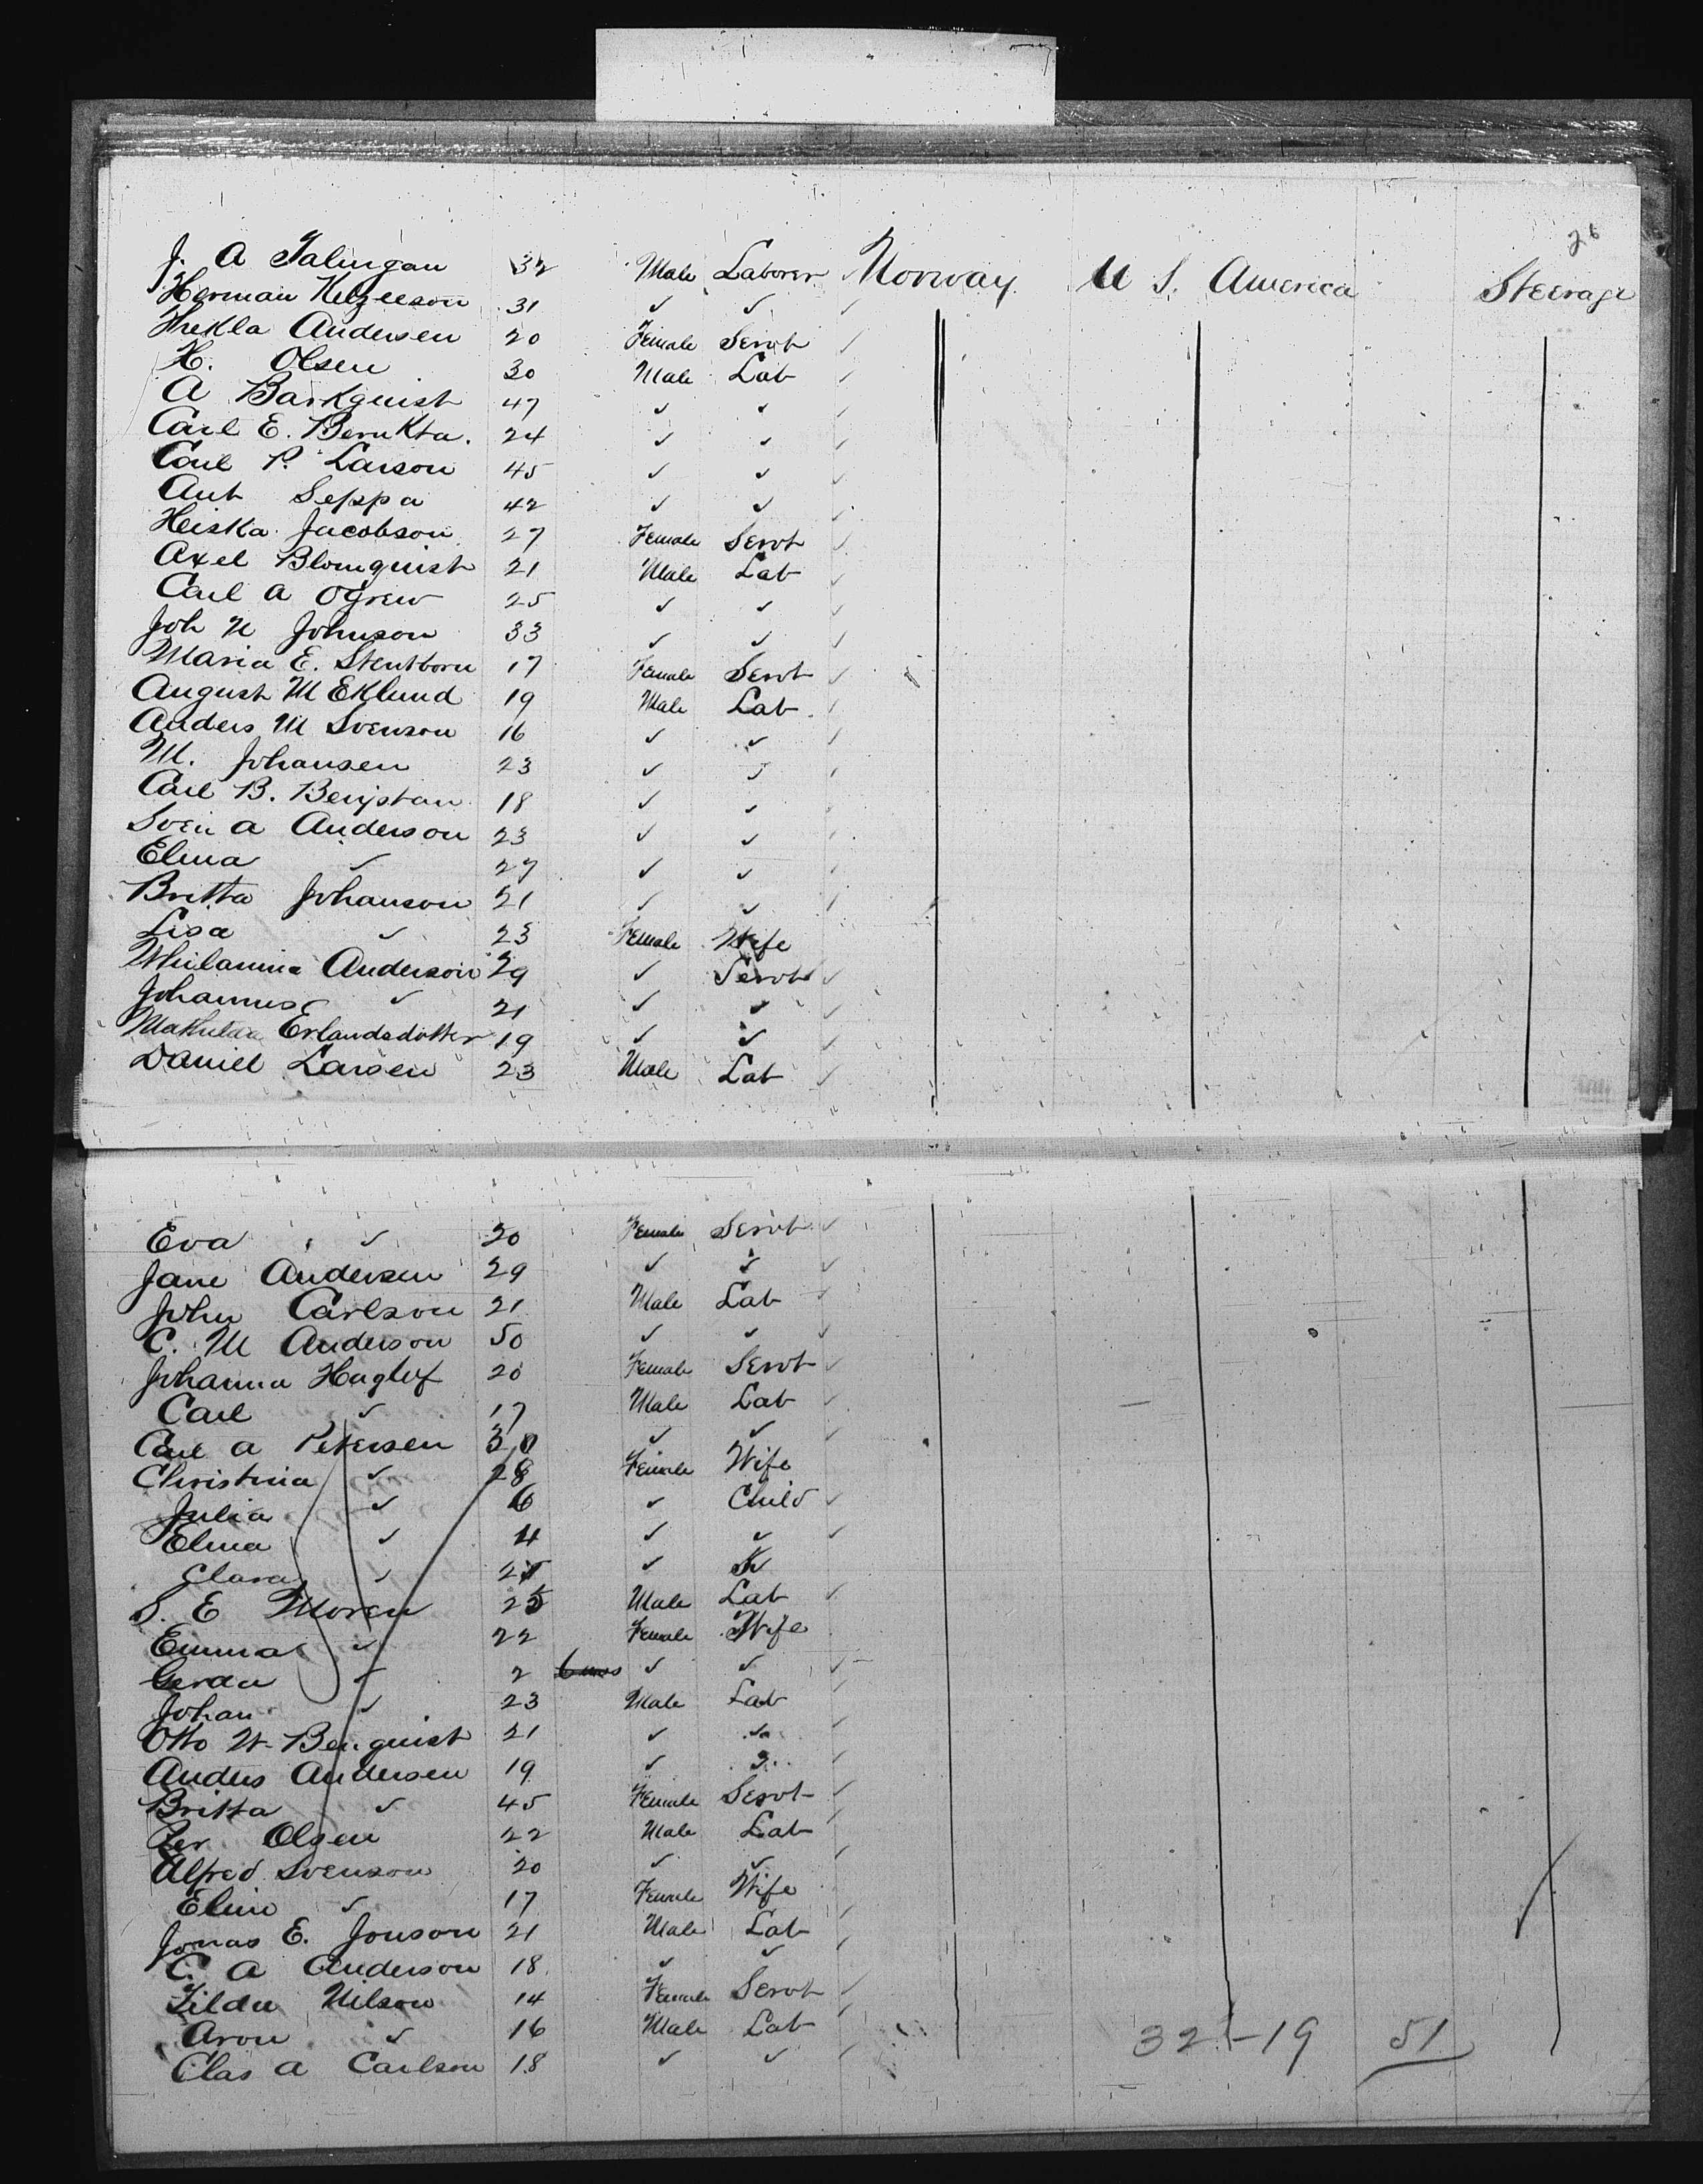 26
J. A Talingan 32 Male Laborer Norway U S. America Steerage
Herman 31 ✓ ✓ ✓
Thekla Andersen 20 Female Servt ✓
H. Olsen 30 Male Lab ✓
A Barkquist 47 ✓ ✓ ✓
Carl E. Berukta. 24 ✓ ✓ ✓
Carl P. Larson 45 ✓ ✓ ✓
Ant Seppa 42 ✓ ✓ ✓
Heiska Jacobson 27 Female Servt ✓
Axel Blomquist 21 Male Lab ✓
Carl A Ogrew 25 ✓ ✓ ✓
Joh N Johnson 33 ✓ ✓ ✓
Maria E. Stentborn 17 Female Servt ✓
August M Eklund 19 Male Lab ✓
Anders M Svenson 16 ✓ ✓ ✓
M. Johansen 23 ✓ ✓ ✓
Carl B. 18 ✓ ✓ ✓
Sven A Anderson 23 ✓ ✓ ✓
Elma ✓ 27 ✓ ✓ ✓
Britta Johanson 21 ✓ ✓ ✓
Lisa ✓ 23 Female Wife
Whilamina Anderson 29 ✓ Servt ✓
Johannes ✓ 21 ✓ ✓ ✓
Mathilda Erlandsdotter 19 ✓ ✓ ✓
Daniel Larsen 23 Male Lab ✓
Eva ✓ 20 Female Servt ✓
Jane Andersen 29 ✓ ✓ ✓
John Carlson 21 Male Lab ✓
C. M Anderson 50 ✓ ✓ ✓
Johanna Haglof 20 Female Servt ✓
Carl ✓ 17 Male Lab ✓
Carl A Petersen 30 ✓ ✓ ✓
Christina ✓ 28 Female Wife
Julia ✓ 6 ✓ Child ✓
Elma ✓ 4 ✓ ✓ ✓
Clara ✓ ✓
S. E Moren 25 Male Lab ✓
Emma ✓ 22 Female Wife
Gerda ✓ 2 6 mos ✓ ✓ ✓
Johan ✓ 23 Male Lab ✓
Otto W. Benquist 21 ✓ ✓
Anders Andersen 19 ✓ ✓
Britta ✓ 45 Female Servt ✓
Per Olsen 22 Male Lab ✓
Alfred Svenson 20 ✓ ✓ ✓
Elin ✓ 17 Female Wife
Jonas E. Jonson 21 Male Lab ✓
C. A Anderson 18 ✓ ✓ ✓
Tilda Nilson 14 Female Servt ✓
Aron ✓ 16 Male Lab ✓
Clas A Carlson 18 ✓ ✓ ✓
32-19 51